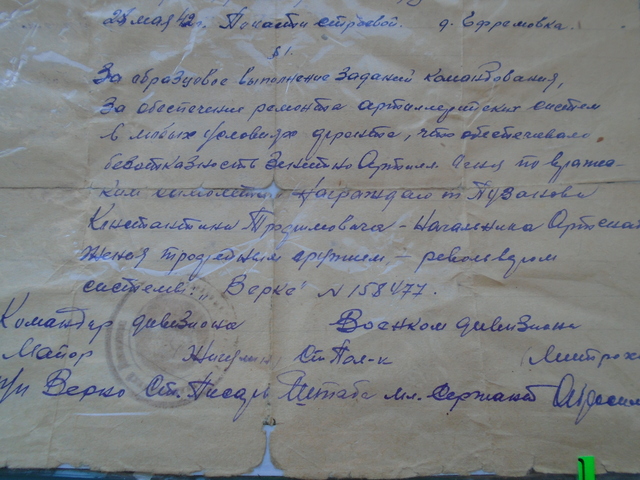 мая 42г. По части строевой. д. Ефремовка.
§ 1.
За образцовое выполнение заданий командования,
за обеспечение ремонта артиллерийских систем
в любых условиях фронта, что обеспечивало
безотказность Зенитно Артилл. огня по вражес-
ким самолетам Награждаю т. Пузанова
Константина Трофимовича - Начальника Артснаб
жения трофейным оружием - револьвером
системы: „Верке" № 158477.
Командир дивизиона Военком дивизиона
Майор Ст. Пол-к Митрох
Верно Ст. Писарь Штаба мл. Сержант